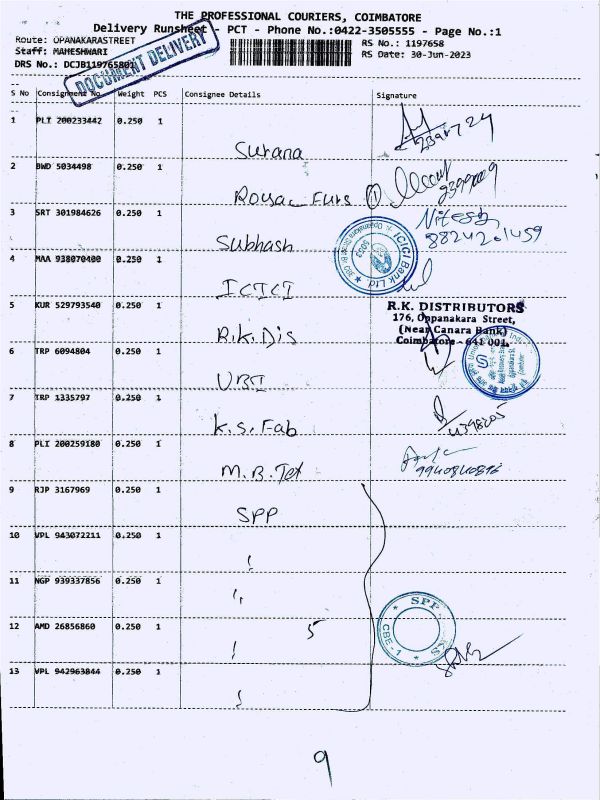 THE PROFESSIONAL COURIERS, COIMBATORE
Delivery Runsheet - PCT - Phone No.:0422-3505555 - Page No.:1
Route: OPANAKARASTREET
RS No.: 1197658
Staff: MAHESHWARI
RS Date: 30-Jun-2023
DRS No.: DCJB119765801
DOCUMENT DELIVERY
S No Consignment No. Weight PCS Consignee Details Signature
1 PLT 200233442 0.250 1
Surana
2 BWD 5034498 0.250 1
Royal Furs 1
3 SRT 301984626 0.250 1
Nitesh
8824201459
Subhash
ICICI Bank Ltd
4 MAA 938070400 0.250 1
ICICI
5 KUR 529793540 0.250 1
R.K. DISTRIBUTORS
176, Oppanakara Street,
(Near Canara Bank)
Coimbatore - 641 001.
R.K. Dis
6 TRP 6094804 0.250 1
UBI
7 TRP 1335797 0.250 1
K.S. Fab
8 PLI 200259180 0.250 1
M.B. Tex
9 RJP 3167969 0.250 1
SPP
10 VPL 943072211 0.250 1
11 NGP 939337856 0.250 1
12 AMD 26856860 0.250 1
5
SPP
CBE-1
13 VPL 942963844 0.250 1
9